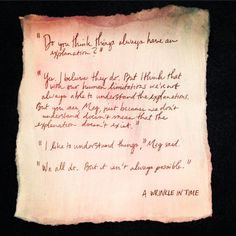 "Do you think things always have an
explanation?"
"Yes. I believe they do. But I think that
with our human limitations we're not
always able to understand the explanations.
But you see, Meg, just because we don't
understand doesn't mean that the
explanation doesn't exist."
"I like to understand things," Meg said.
"We all do. But it isn't always possible."
A WRINKLE IN TIME